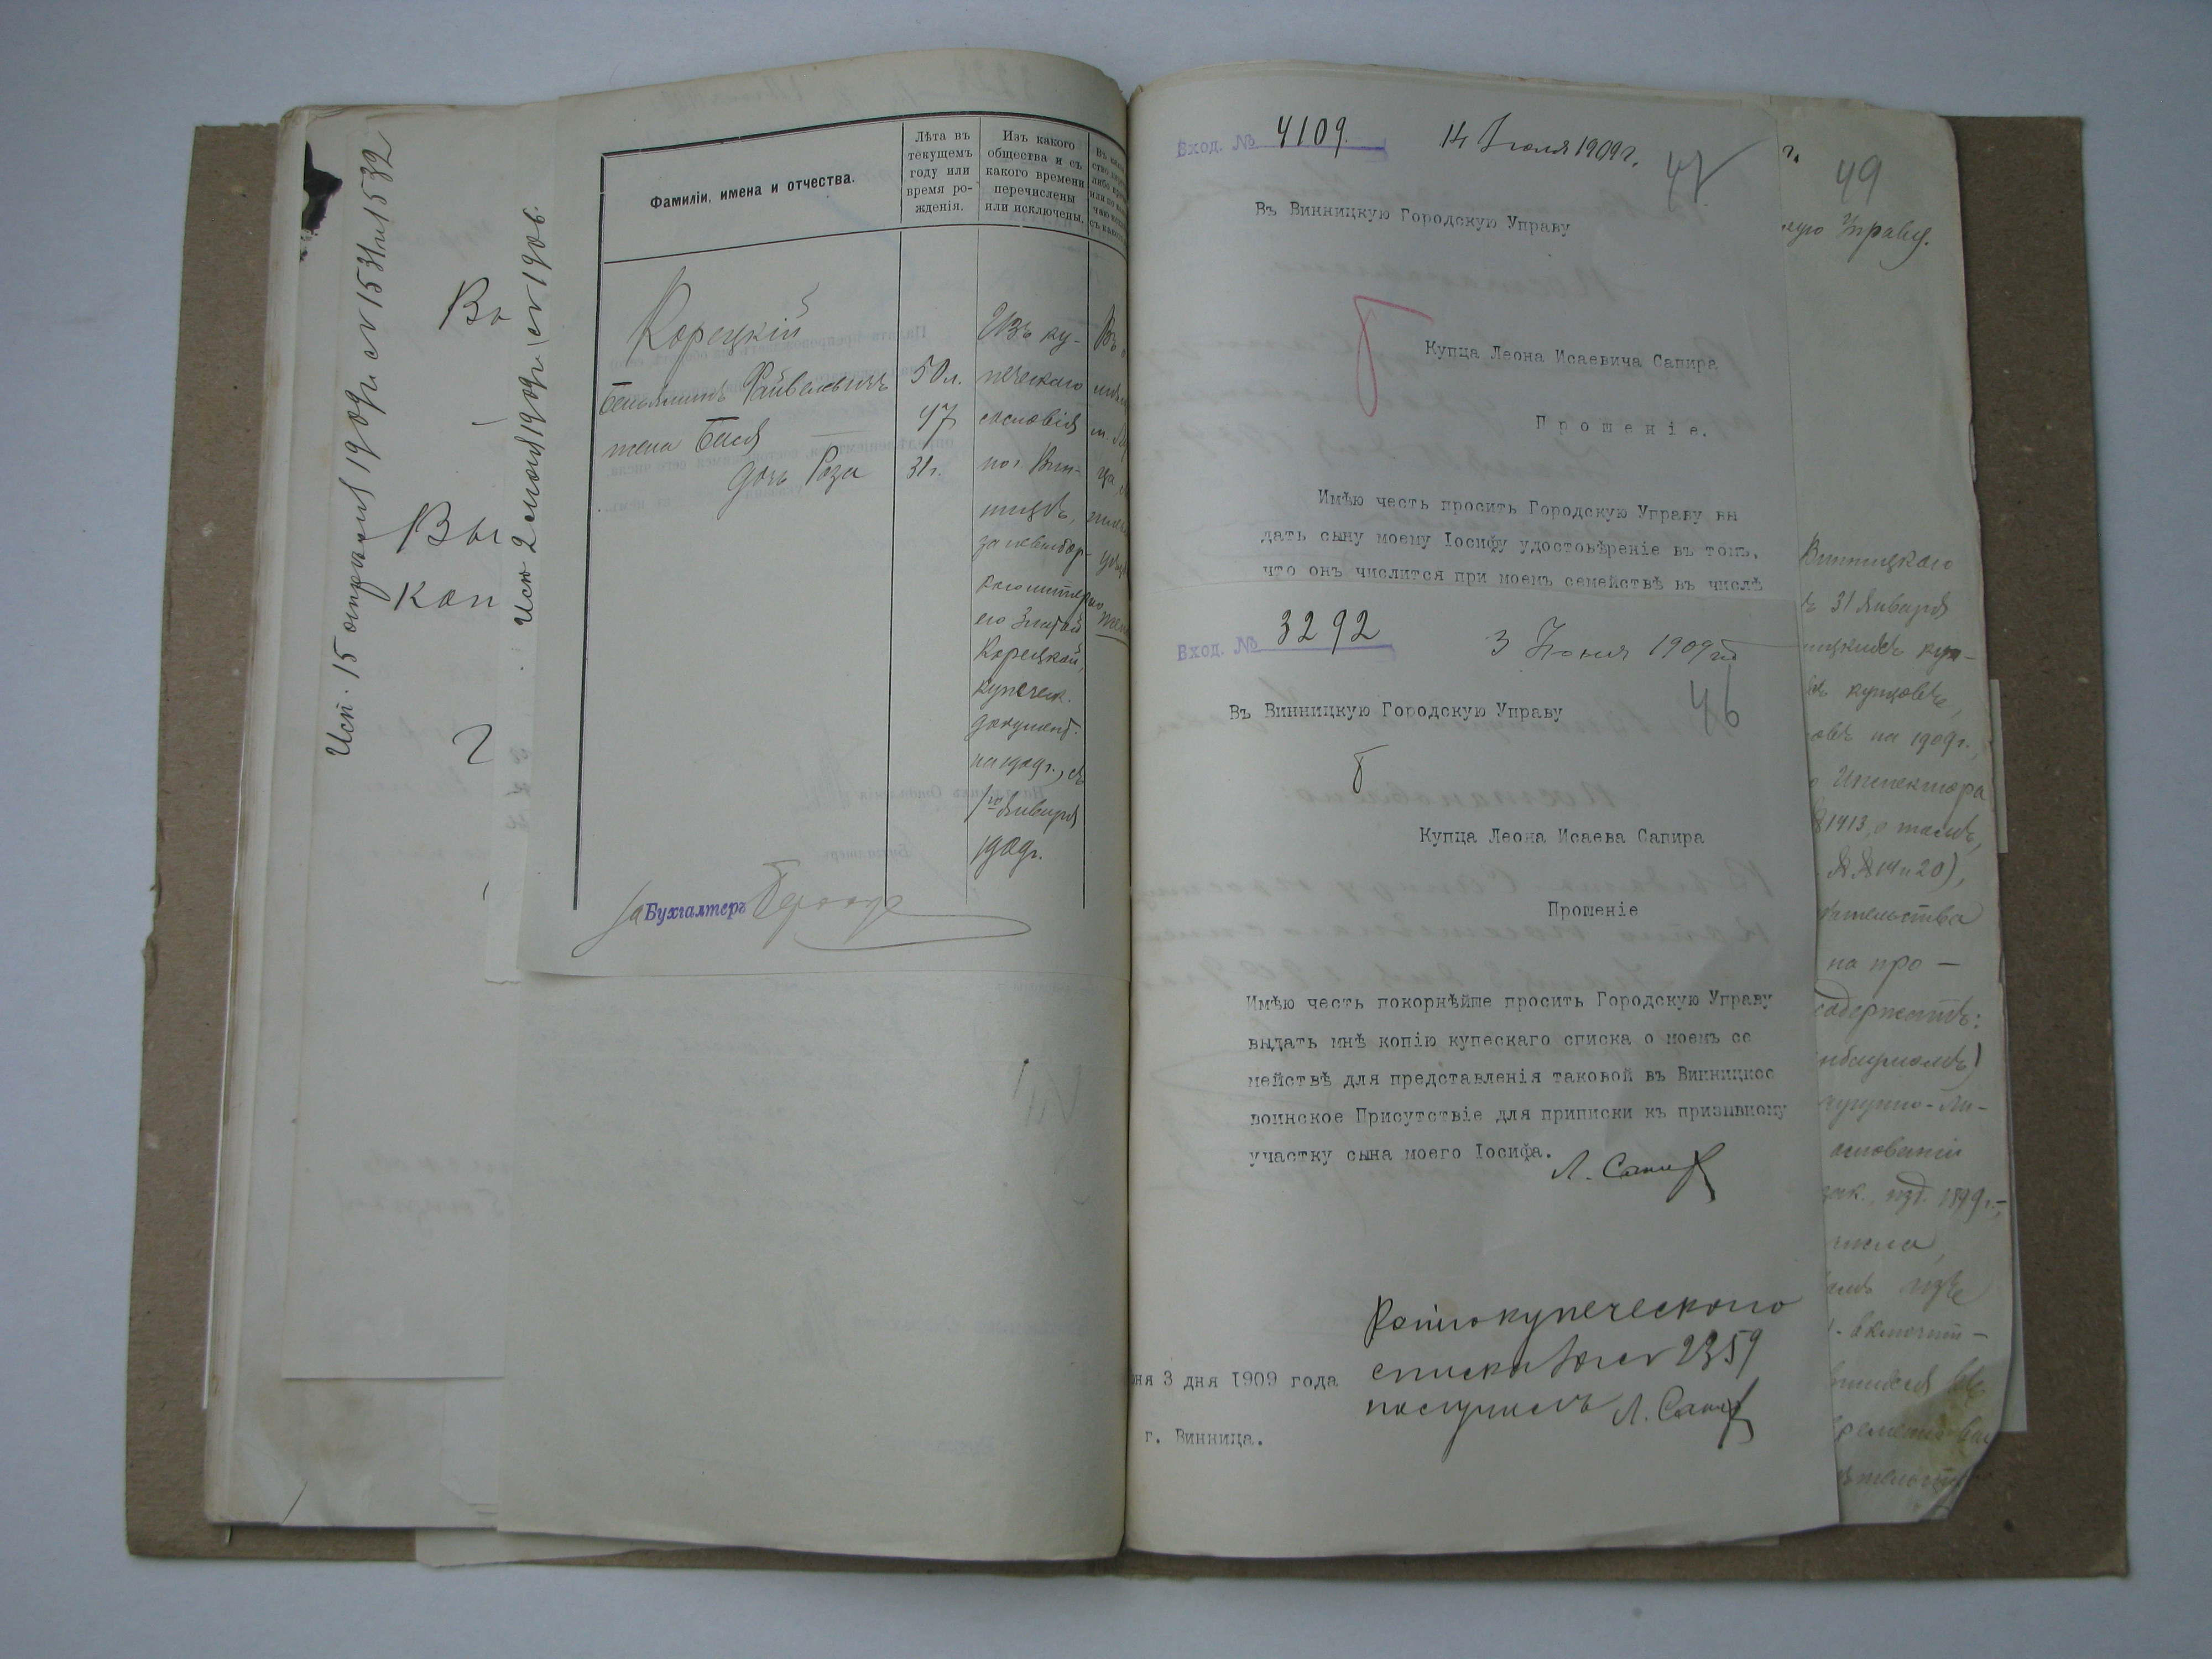 Исп. 15 апрѣля 1909 г. №№ 1531 и 1532
Вы
Вы
Коп
Исп 2 1909 г. № 1906.
Фамиліи, имена и отчества.
Лѣта въ
текущемъ
году или
время ро-
жденія.
Изъ какого
общества и съ
какого времени
перечислены
или исключены.
Корецкій
Беньяминъ Файвелевичъ
50 л.
жена Бася
47
дочь Роза
31 г.
Изъ ку-
печескаго
сословія
по г. Вин-
ницѣ,
за невыбор-
кою матерью
его Златой
Корецкой,
купеческ.
документ.
на 1909 г., съ
1го Января
1909 г.
За Бухгалтеръ
Вход. № 4109. 14 Іюля 1909 г.
47
Въ Винницкую Городскую Управу
Купца Леона Исаевича Сапира
Прошеніе.
Имѣю честь просить Городскую Управу вы
дать сыну моему Іосифу удостовѣреніе въ томъ,
что онъ числится при моемъ семействѣ въ числѣ
Вход. № 3292 3 Іюня 1909 г.
46
Въ Винницкую Городскую Управу
Купца Леона Исаева Сапира
Прошеніе
Имѣю честь покорнѣйше просить Городскую Управу
выдать мнѣ копію купескаго списка о моемъ се
мействѣ для представленія таковой въ Винницкое
воинское Присутствіе для приписки къ призывному
участку сына моего Іосифа.
Л. Сапир
ня 3 дня 1909 года
г. Винница.
Копію купеческого
списка за № 2359
получилъ Л. Сапир
г.
49
кую Управу.
Винницкаго
31 Января
ницкихъ куп-
купцовъ,
овъ на 1909 г.,
Инспектора
№ 1413, о томъ,
№№ 14 и 20),
на про-
содержитъ:
основаніи
зак. изд. 1899 г.,
числа,
изъ